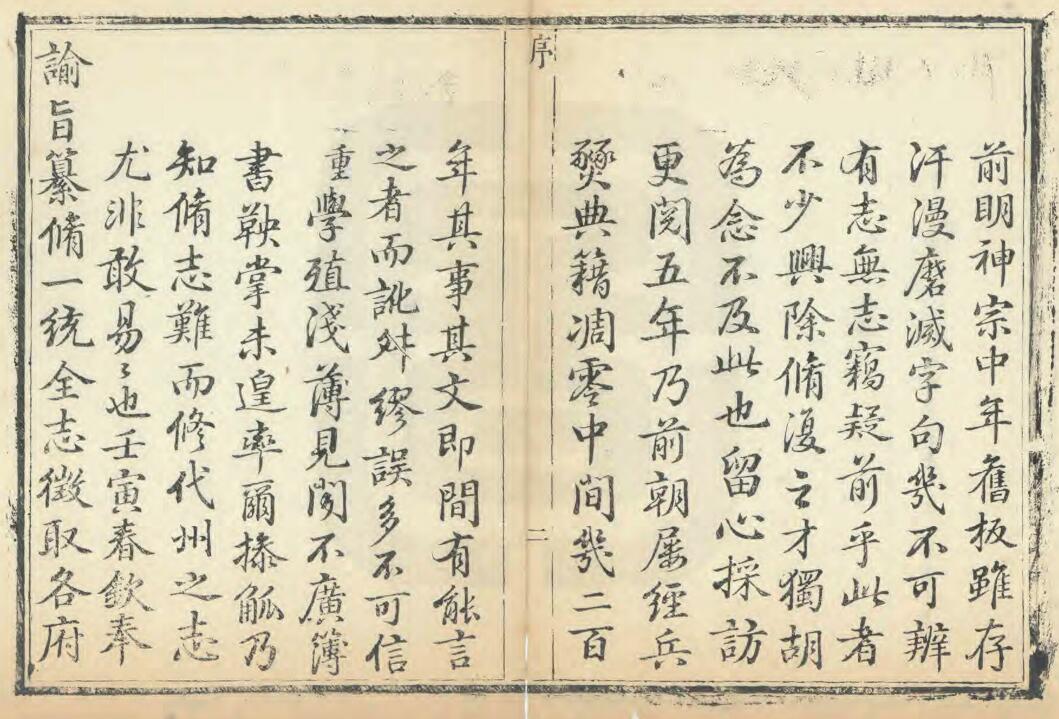 前明神宗中年舊板雖存
汗漫磨滅字句幾不可辨
有志無志竊疑前乎此者
不少興除脩復之才獨胡
為念不及此也留心採訪
更閱五年乃前朝屢經兵
燹典籍凋零中間幾二百
序
二
年其事其文即間有能言
之者而訛舛繆誤多不可信
重學殖淺薄見聞不廣簿
書鞅掌未遑率爾操觚乃
知脩志難而修代州之志
尤非敢易〻也壬寅春欽奉
諭旨纂脩一統全志徵取各府